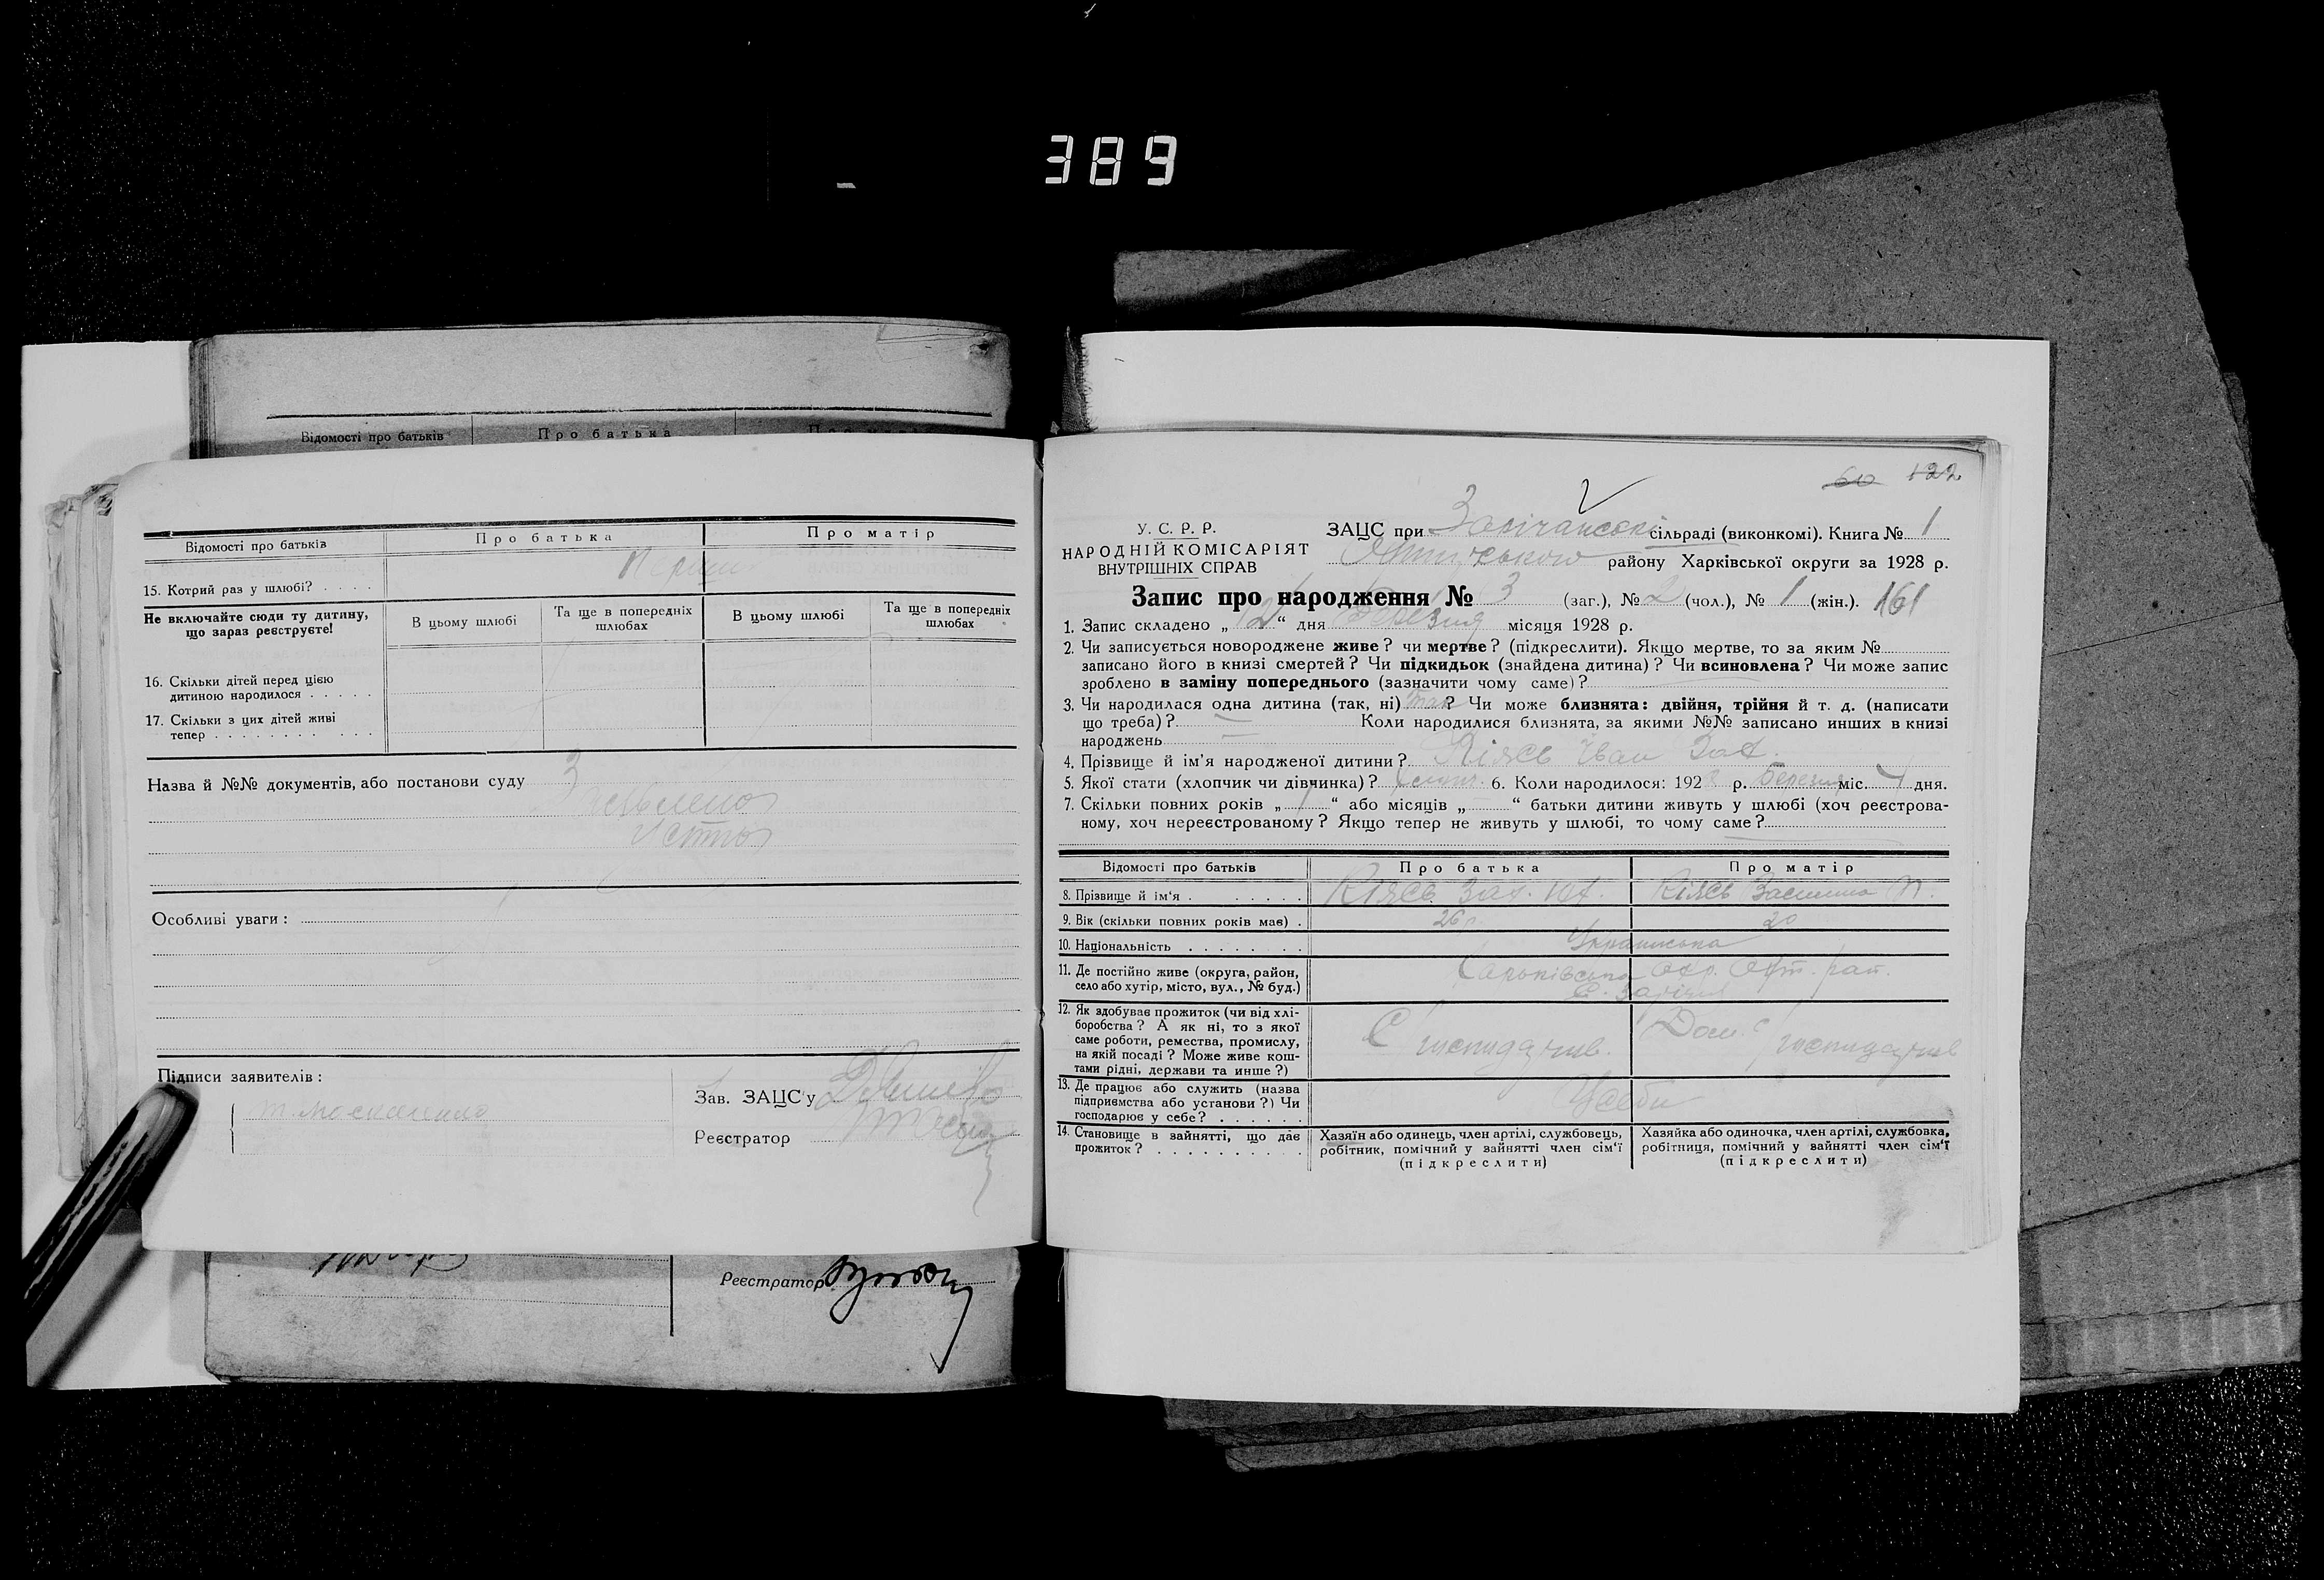 389
Відомості про батьків Про батька
Відомості про батьків Про батька Про матір
15. Котрий раз у шлюбі? . . . .
Не включайте сюди ту дитину, що зараз реєструєте!
В цьому шлюбі Та ще в попередніх шлюбах В цьому шлюбі Та ще в попередніх шлюбах
16. Скільки дітей перед цією
дитиною народилося . . . . .
17. Скільки з цих дітей живі
тепер . . . . . . . . . . .
Назва й №№ документів, або постанови суду З
Особливі уваги:
Підписи заявителів:
Зав. ЗАЦС'у
Реєстратор
Реєстратор
60 122
У. С. Р. Р.
НАРОДНІЙ КОМІСАРІЯТ
ВНУТРІШНІХ СПРАВ
ЗАЦС при сільраді (виконкомі). Книга № 1
району Харківської округи за 1928 р.
Запис про народження № 3 (заг.), № 2 (чол.), № 1 (жін.). 161
1. Запис складено „ 12 “ дня Березня місяця 1928 р.
2. Чи записується новороджене живе? чи мертве? (підкреслити). Якщо мертве, то за яким №
записано його в книзі смертей? Чи підкидьок (знайдена дитина)? Чи всиновлена? Чи може запис
зроблено в заміну попереднього (зазначити чому саме)?
3. Чи народилася одна дитина (так, ні) так? Чи може близнята: двійня, трійня й т. д. (написати
що треба)? — Коли народилися близнята, за якими №№ записано инших в книзі
народжень —
4. Прізвище й ім'я народженої дитини? Кіясь Іван Зах.
5. Якої стати (хлопчик чи дівчинка)? 6. Коли народилося: 1928 р. березня міс. 4 дня.
7. Скільки повних років „ 1 “ або місяців „ — “ батьки дитини живуть у шлюбі (хоч реєстрова-
ному, хоч нереєстрованому? Якщо тепер не живуть у шлюбі, то чому саме?
Відомості про батьків Про батька Про матір
8. Прізвище й ім'я . . . . . . . Кіясь Зах. Кіясь
9. Вік (скільки повних років має) . 26 р. 20
10. Національність . . . . . . . Українська
11. Де постійно живе (округа, район,
село або хутір, місто, вул., № буд.)
Харківська окр. рай.
12. Як здобуває прожиток (чи від хлі-
боробства? А як ні, то з якої
саме роботи, ремества, промислу,
на якій посаді? Може живе кош-
тами рідні, держави та инше?)
13. Де працює або служить (назва
підприємства або установи?) Чи
господарює у себе? . . . . . .
У себе
14. Становище в зайнятті, що дає
прожиток? . . . . . . . . . .
Хазяїн або одинець, член артілі, службовець,
робітник, помічний у зайнятті член сім'ї
(підкреслити)
Хазяйка або одиночка, член артілі, службовка,
робітниця, помічний у зайнятті член сім'ї
(підкреслити)